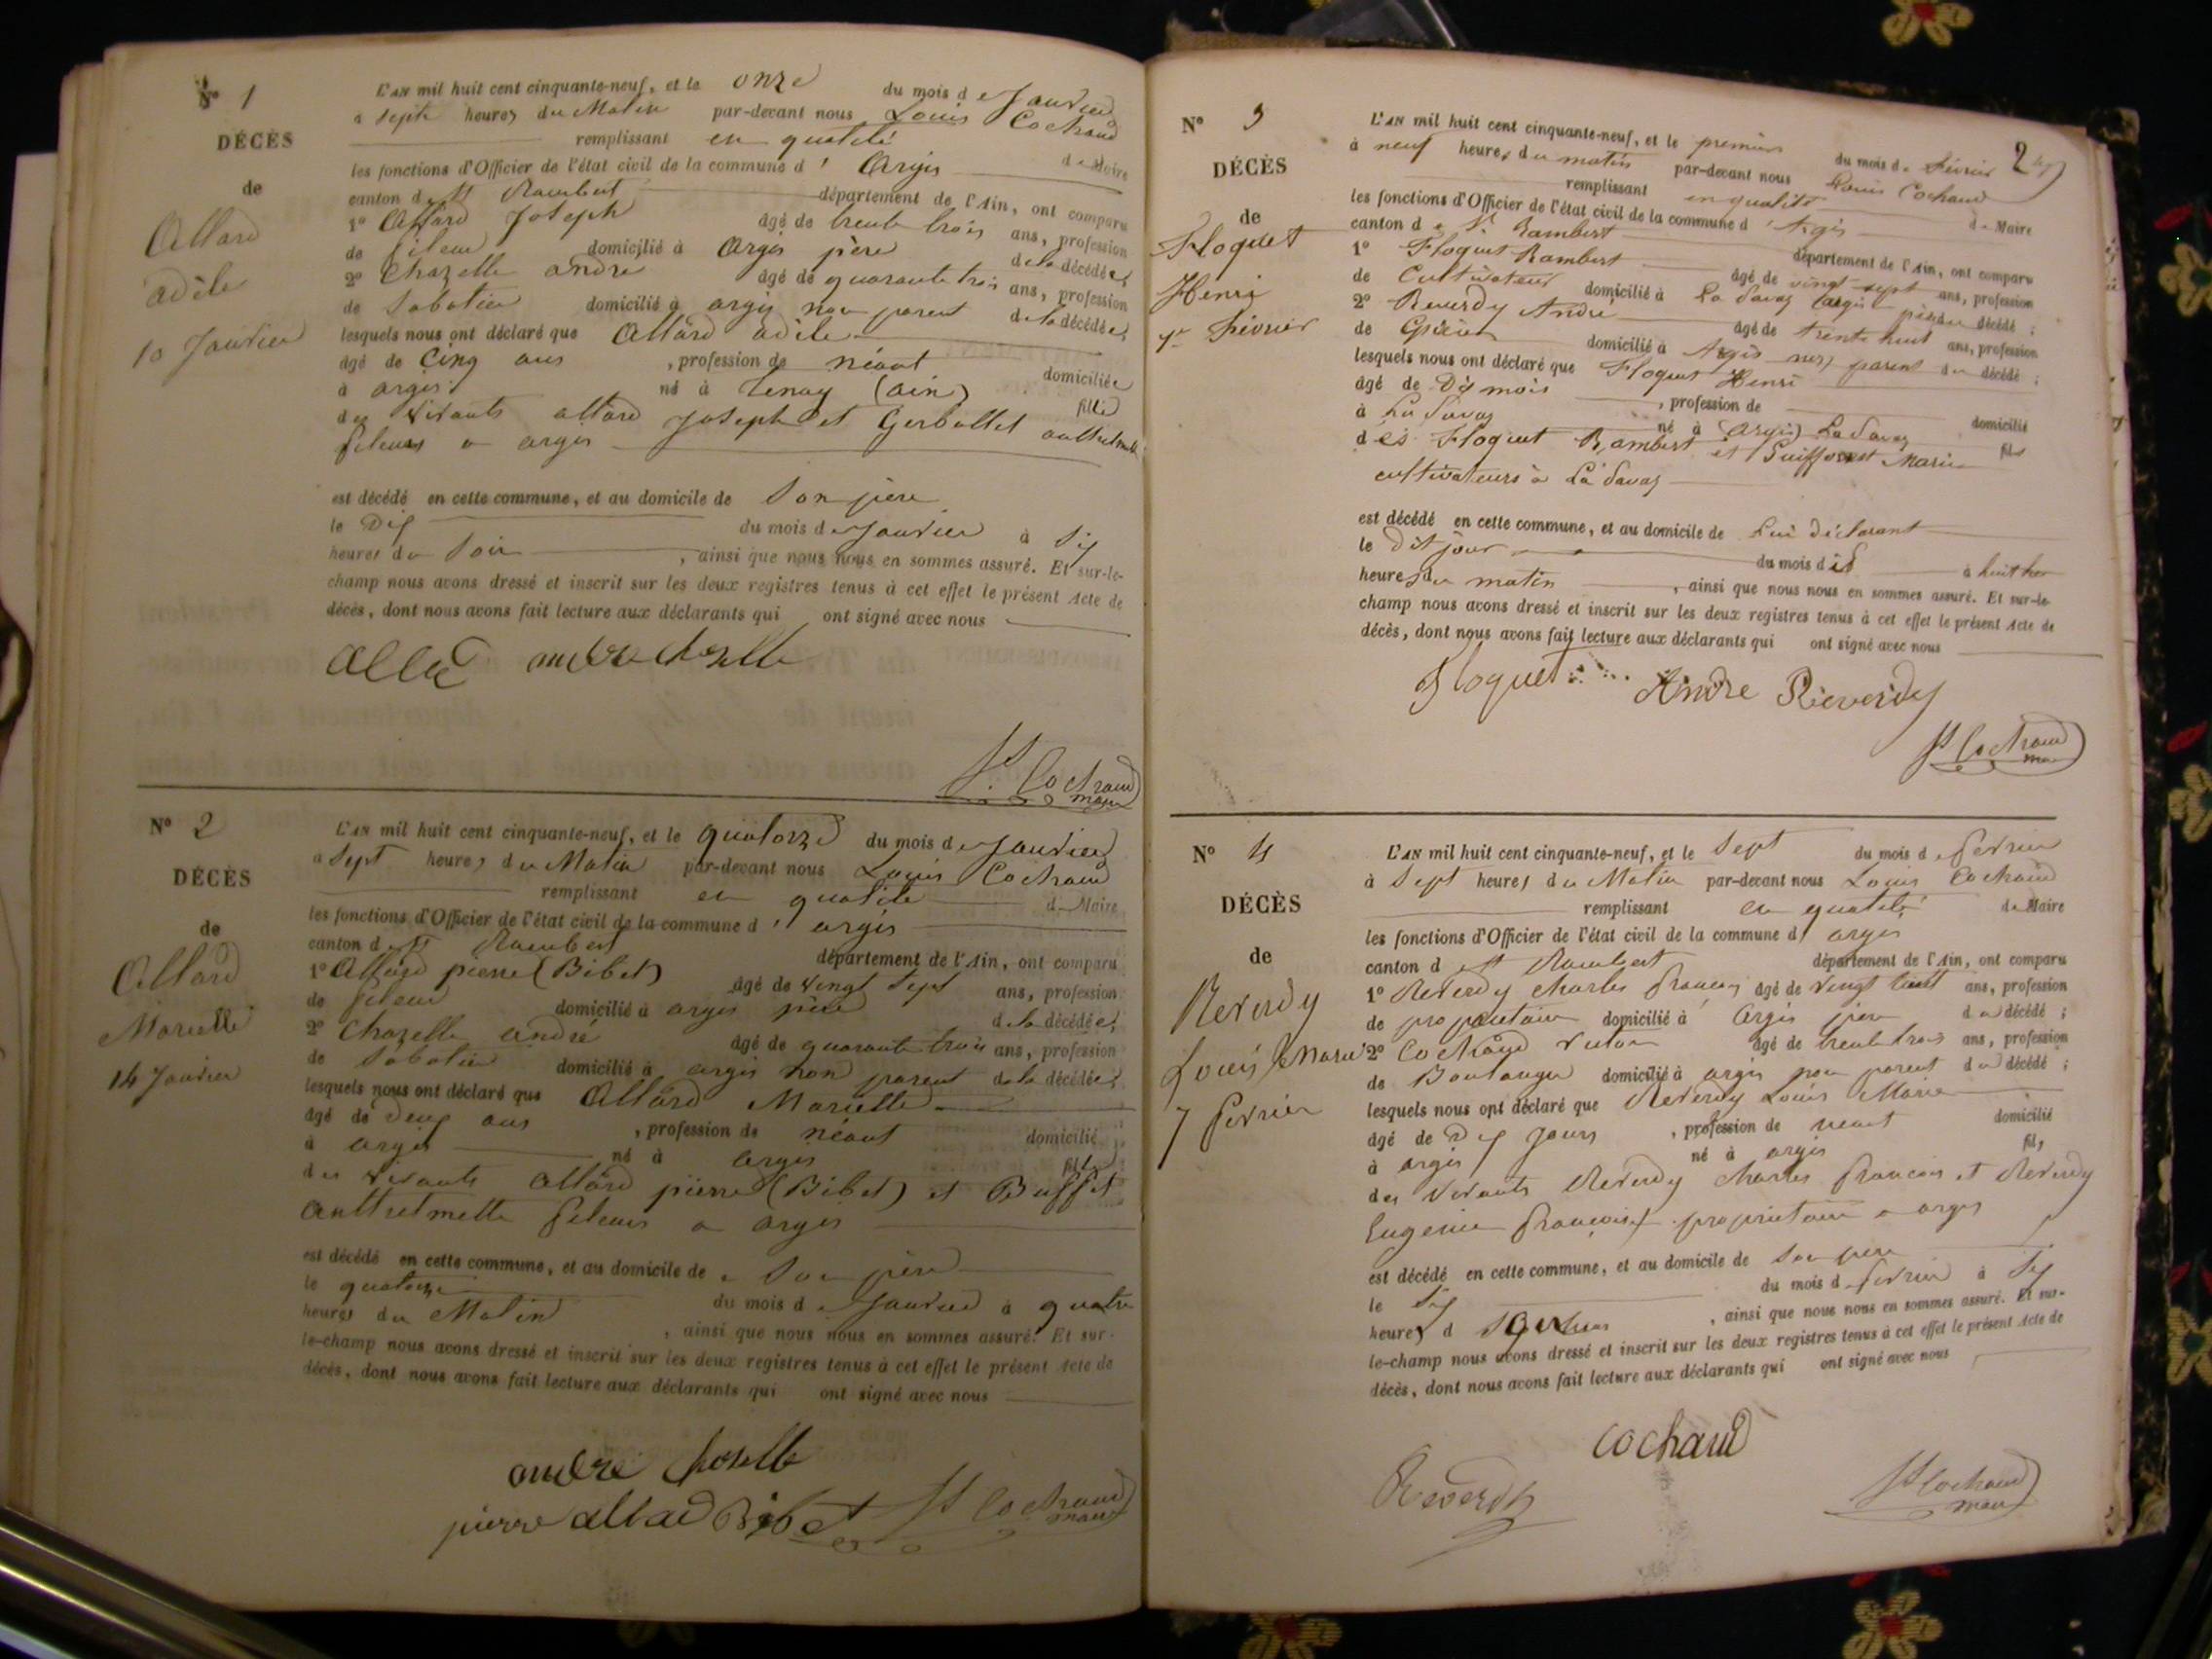 N° 1
DÉCÈS
de
Allard
adèle
10 Janvier
L'AN mil huit cent cinquante-neuf, et le onze du mois de Janvier
à sept heures du Matin par-devant nous Louis Cochaud
remplissant en qualité de Maire
les fonctions d'Officier de l'état civil de la commune d' Argis
canton de St Rambert département de l'Ain, ont comparu
1° Allard Joseph âgé de trente trois ans, profession
de fileur domicilié à Argis père de la décédée,
2° Chazelle andré âgé de quarante trois ans, profession
de Sabotier domicilié à argis non parent de la décédée,
lesquels nous ont déclaré que Allard adèle
âgé de Cinq ans , profession de néant domiciliée
à argis né à tenay (ain) fille
des vivants allard Joseph et Gerbollet
fileurs a argis
est décédé en cette commune, et au domicile de Son père
le Dix du mois de Janvier à Six
heures du Soir , ainsi que nous nous en sommes assuré. Et sur-le-
champ nous avons dressé et inscrit sur les deux registres tenus à cet effet le présent Acte de
décès, dont nous avons fait lecture aux déclarants qui ont signé avec nous
andre
Cochaud
maire
N° 2
DÉCÈS
de
Allard
Mariette
14 Janvier
L'AN mil huit cent cinquante-neuf, et le quatorze du mois de Janvier
à Sept heures du Matin par-devant nous Louis Cochaud
remplissant en qualité de Maire
les fonctions d'Officier de l'état civil de la commune d' argis
canton de St Rambert département de l'Ain, ont comparu
1° Allard pierre (Bibet) âgé de vingt Sept ans, profession
de fileur domicilié à argis père de la décédée,
2° Chazelle andré âgé de quarante trois ans, profession
de Sabotier domicilié à argis non parent de la décédée,
lesquels nous ont déclaré que Allard Mariette
âgé de Deux ans , profession de néant domicilié
à argis né à argis fille
des vivants Allard pierre (Bibet) et Buffet
fileurs a argis
est décédé en cette commune, et au domicile de Son père
le quatorze du mois de Janvier à quatre
heures du Matin , ainsi que nous nous en sommes assuré. Et sur-
le-champ nous avons dressé et inscrit sur les deux registres tenus à cet effet le présent Acte de
décès, dont nous avons fait lecture aux déclarants qui ont signé avec nous
andre
pierre allard Bibet Cochaud
maire
2
N° 3
DÉCÈS
de
Floquet
Henri
1er Février
L'AN mil huit cent cinquante-neuf, et le premier du mois de Février
à neuf heures du matin par-devant nous Louis Cochaud
remplissant en qualité de Maire
les fonctions d'Officier de l'état civil de la commune d' Argis
canton de St Rambert département de l'Ain, ont comparu
1° Floquet Rambert âgé de vingt sept ans, profession
de Cultivateur domicilié à La Savaz (argis) père du décédé ;
2° Reverdy André âgé de trente huit ans, profession
de Epicier domicilié à Argis non parent du décédé ;
lesquels nous ont déclaré que Floquet Henri
âgé de Dix mois , profession de domicilié
à La Savaz né à (Argis) La Savaz fils
des Floquet Rambert et Marie
cultivateurs à La Savaz
est décédé en cette commune, et au domicile de Lui déclarant
le Dit jour du mois d à huit
heures du matin , ainsi que nous nous en sommes assuré. Et sur-le-
champ nous avons dressé et inscrit sur les deux registres tenus à cet effet le présent Acte de
décès, dont nous avons fait lecture aux déclarants qui ont signé avec nous
Floquet André Reverdy
Cochaud
maire
N° 4
DÉCÈS
de
Reverdy
Louis Marie
7 fevrier
L'AN mil huit cent cinquante-neuf, et le Sept du mois de fevrier
à Sept heures du Matin par-devant nous Louis Cochaud
remplissant en qualité de Maire
les fonctions d'Officier de l'état civil de la commune d' argis
canton de St Rambert département de l'Ain, ont comparu
1° Reverdy Charles françois âgé de vingt huit ans, profession
de propriétaire domicilié à Argis père du décédé ;
2° Cochaud victor âgé de trente trois ans, profession
de Boulanger domicilié à argis non parent du décédé ;
lesquels nous ont déclaré que Reverdy Louis Marie
âgé de Dix Jours , profession de neant domicilié
à argis né à argis fils
des vivants Reverdy Charles françois et Reverdy
Eugenie françoise propriétaire a argis
est décédé en cette commune, et au domicile de Son père
le Six du mois de fevrier à Six
heures d , ainsi que nous nous en sommes assuré. Et sur-
le-champ nous avons dressé et inscrit sur les deux registres tenus à cet effet le présent Acte de
décès, dont nous avons fait lecture aux déclarants qui ont signé avec nous
Cochaud
Reverdy Cochaud
maire